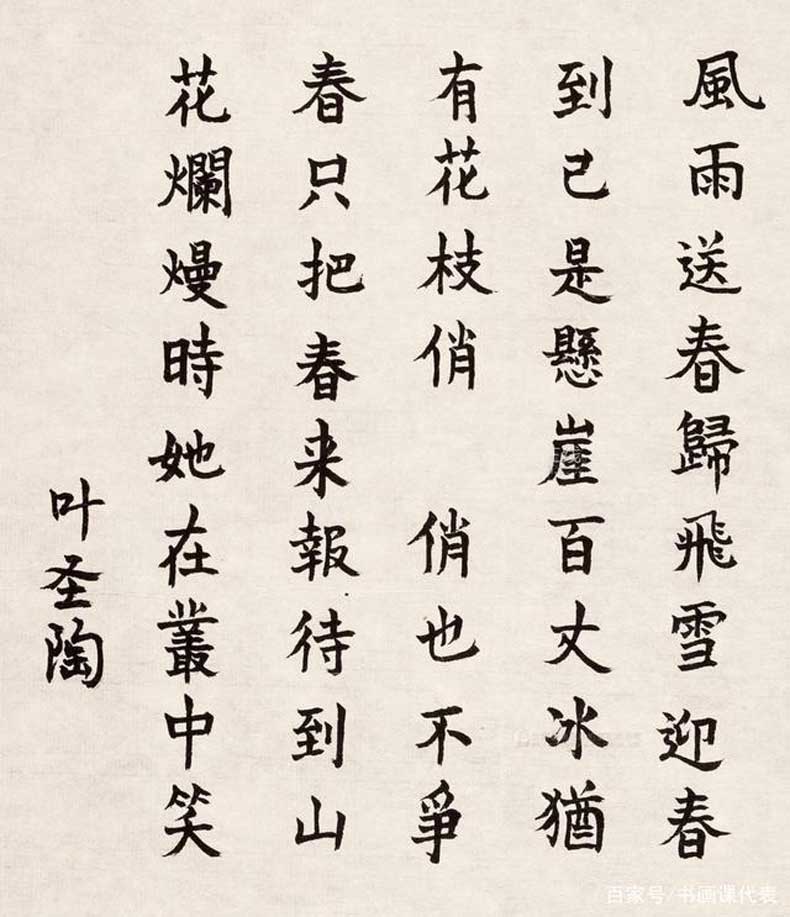 風雨送春歸飛雪迎春
到已是懸崖百丈冰猶
有花枝俏 俏也不爭
春只把春来報待到山
花爛熳時她在叢中笑
叶圣陶
百家号/书画课代表